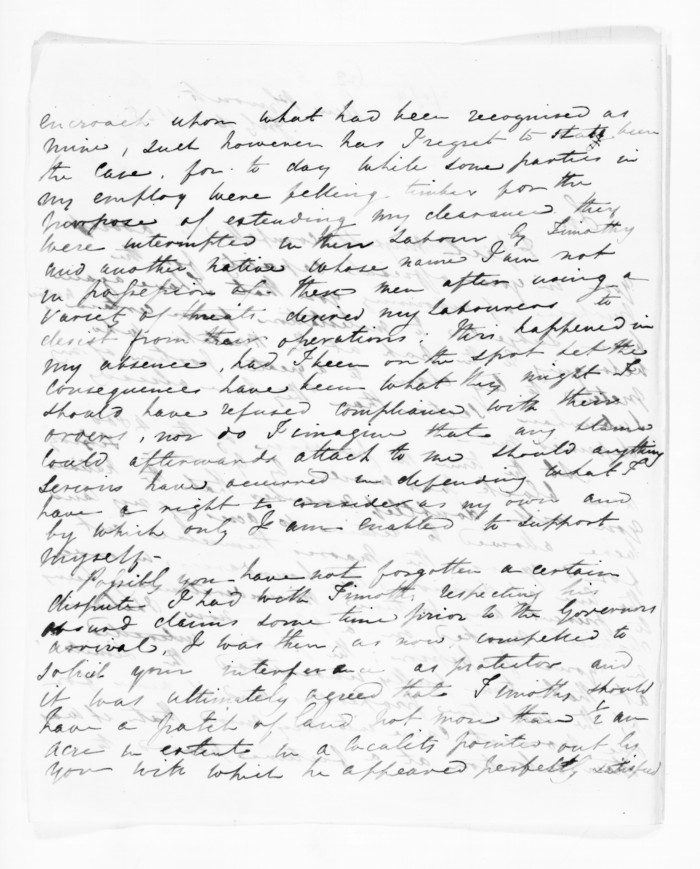 encroach upon what had been recognised as
mine, such however has I regret to state been
the case, for to day while some parties in
my employ were felling timber for the
purpose of extending my clearance they
were interrupted in their labour by Timothy
and another native whose name I am not
in possession of. These men after using a
variety of threats desired my labourers to
desist from their operations; this happened in
my absence, had I been on the spot let the
consequences have been what they might I
should have refused compliance with their
orders, nor do I imagine that any blame
could afterwards attach to me should anything
serious have occurred in defending what I
have a right to consider as my own and
by which only I am enabled to support
myself.-
Possibly you have not forgotten a certain
dispute I had with Timothy respecting his
absurd claims some time prior to the Governors
arrival, I was then, as now, compelled to
solicit your interference as protector and
it was ultimately agreed that Timothy should
have a patch of land not more than ½ an
acre in extent in a locality pointed out by
you with which he appeared perfectly satisfied